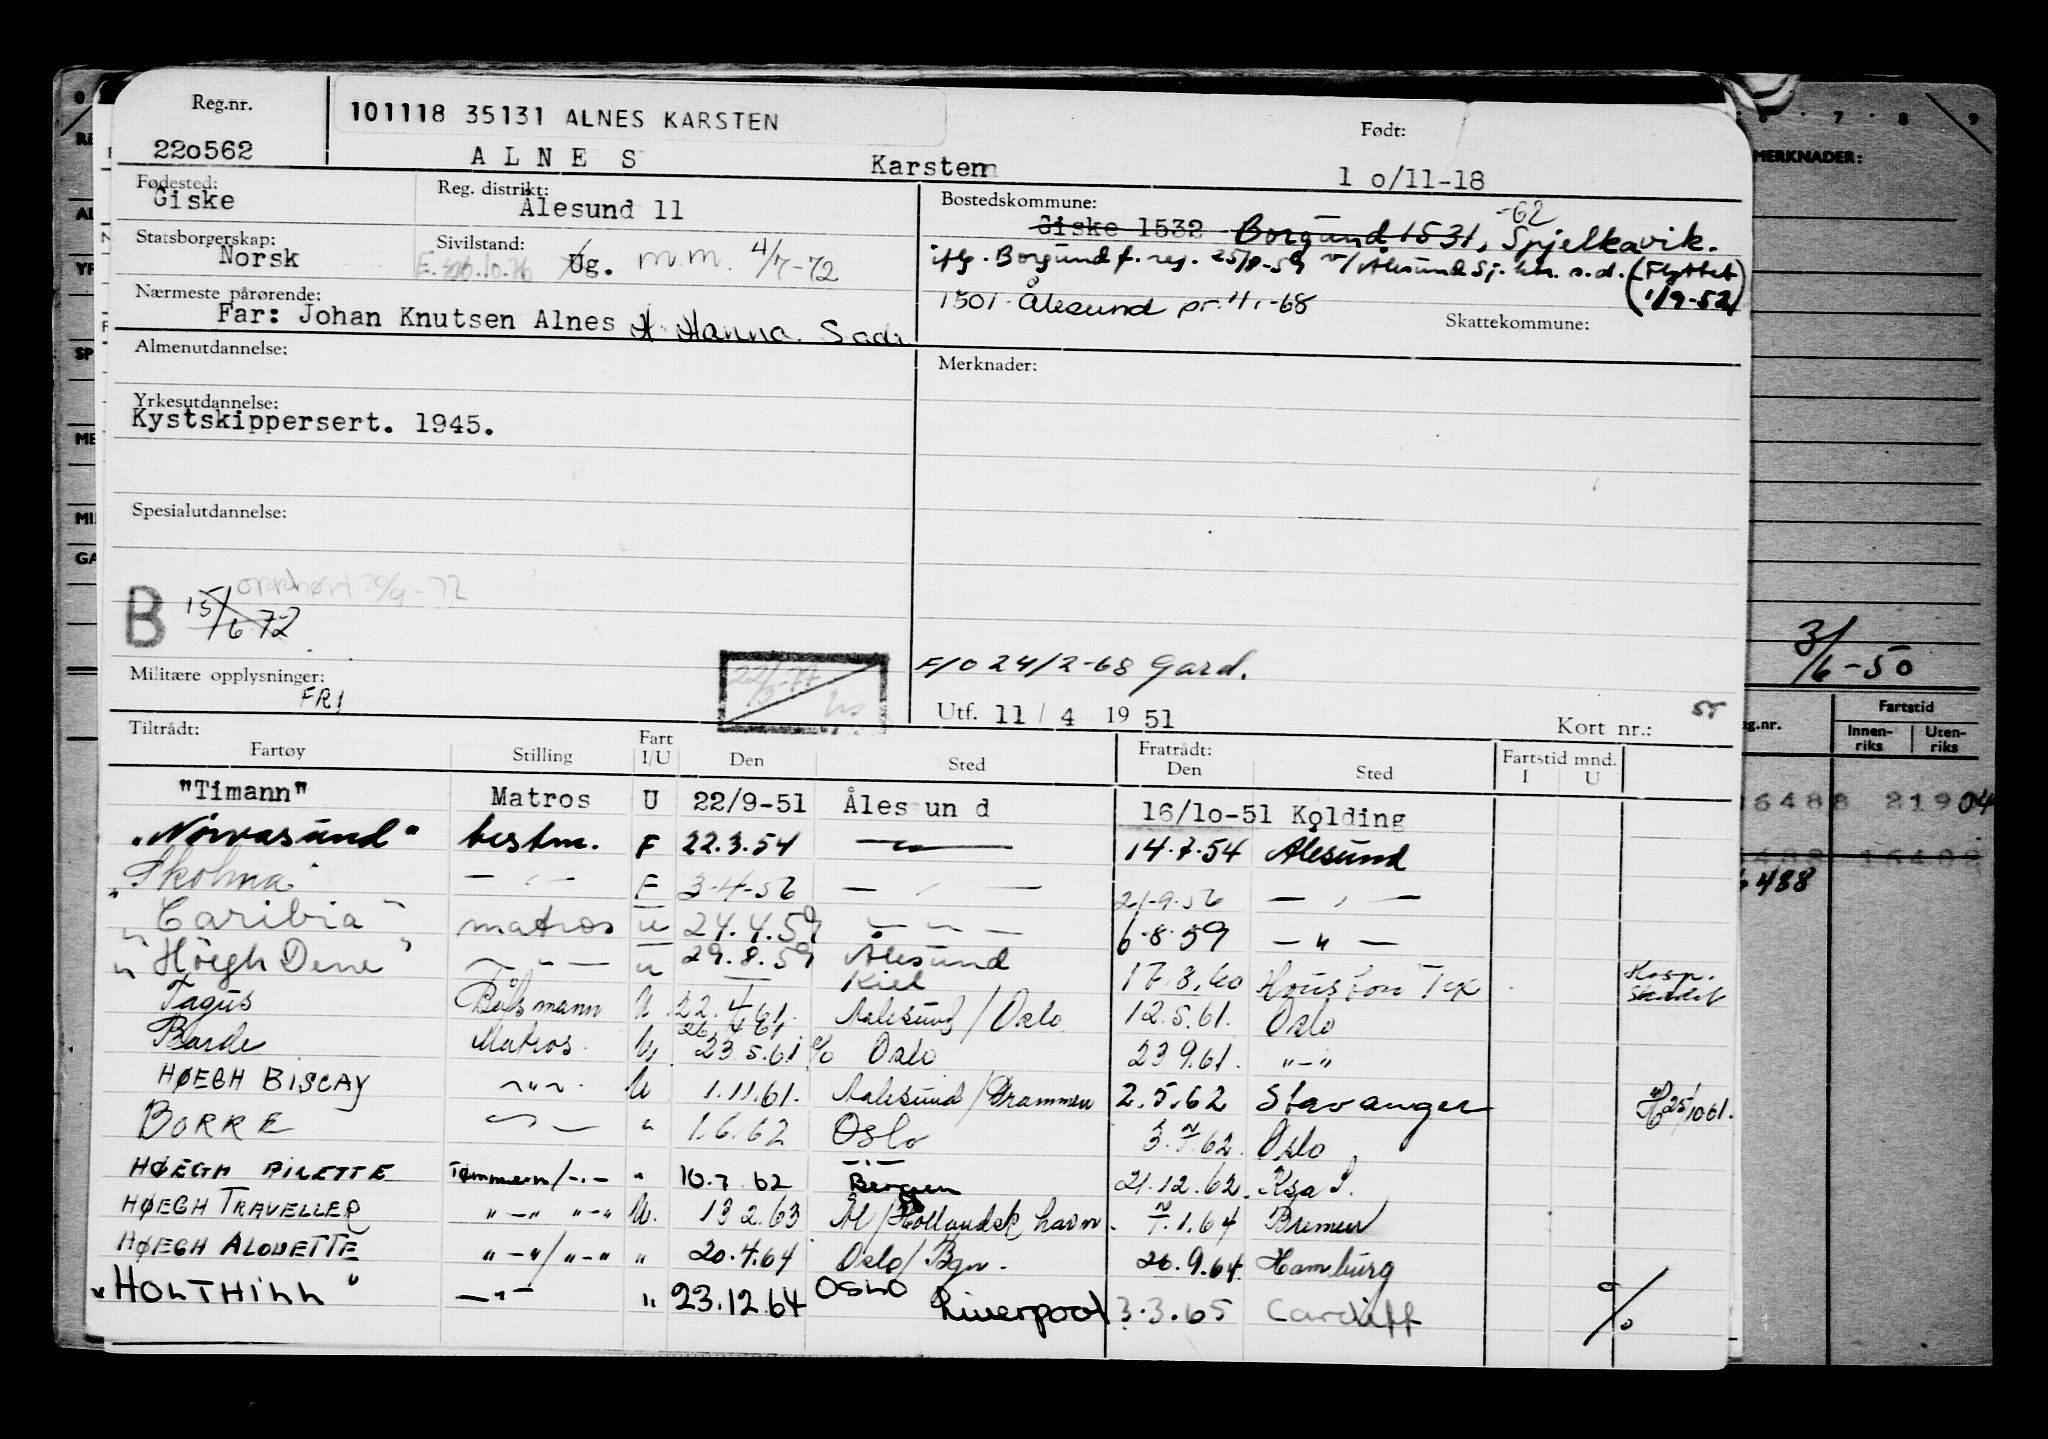 Reg.nr.
220562
101118 35131 ALNES KARSTEN
A L N E S Karsten
Født:
1 o/11-18
Fødested:
Giske
Reg. distrikt:
Ålesund 11
Bostedskommune:
Giske 1532 Borgund 1531, -62 Spjelkavik.
Statsborgerskap:
Norsk
Sivilstand:
Ug. m.m. 4/7-72
iflg. Borgund f. reg. 25/8-59 v/ Ålesund sj. ktr. s.d. (Flyttet
1/9-52)
Nærmeste pårørende:
Far: Johan Knutsen Alnes Hanna
1501 Ålesund pr. 4/1-68
Skattekommune:
Almenutdannelse:
Merknader:
Yrkesutdannelse:
Kystskippersert. 1945.
Spesialutdannelse:
B 15/6 72
Militære opplysninger:
FRI
F/O 24/2-68 Gard.
Utf. 11 / 4 19 51
Kort nr.:
Tiltrådt:
Fartøy Stilling Fart I/U Den Sted Fratrådt: Den Sted Fartstid mnd. I U
"Timann" Matros U 22/9-51 Ålesund 16/1o-51 Kolding
"Nörvasund" bestm. F 22.3.54 — " — 14.7.54 Ålesund
"Skolma" — " — F 3-4-56 — " — 21-9-56 — " —
"Caribia" matros u 24.4.59 — " — 6.8.59 — " —
"Höegh Dene" — " — u 29.8.59 Ålesund Kiel 17.8.60 Houston Tex Hosp.
Tagus Båtsmann U 22.4.61. Aalesund / Oslo 12.5.61. Oslo
26.4.61
Barde Matros. U, 23.5.61 % Oslo 23.9.61. "-"
HØEGH BISCAY "-" U 1.11.61. Aalesund / Drammen 2.5.62 Stavanger 25/10 61.
BORRE — " — " 1.6.62 Oslo 3.7.62. Oslo
HØEGH AILETTE Tømmerm/-"- " 10.7.62 -"- Bergen 21.12.62.
HØEGH TRAVELLER "-" "-" U. 13 2.63 Ål / Hollandsk havn. 7.1.64 Bremen
HØEGH ALOUETTE "-"/"-" " 20.4.64 Oslo / Bgn. 26.9.64. Hamburg
"HOLTHILL" -"- " 23.12.64 OSLO Liverpool 3.3.65 Cardiff %
MERKNADER:
3/6-50
Fartstid
Innen-
riks
Uten-
riks